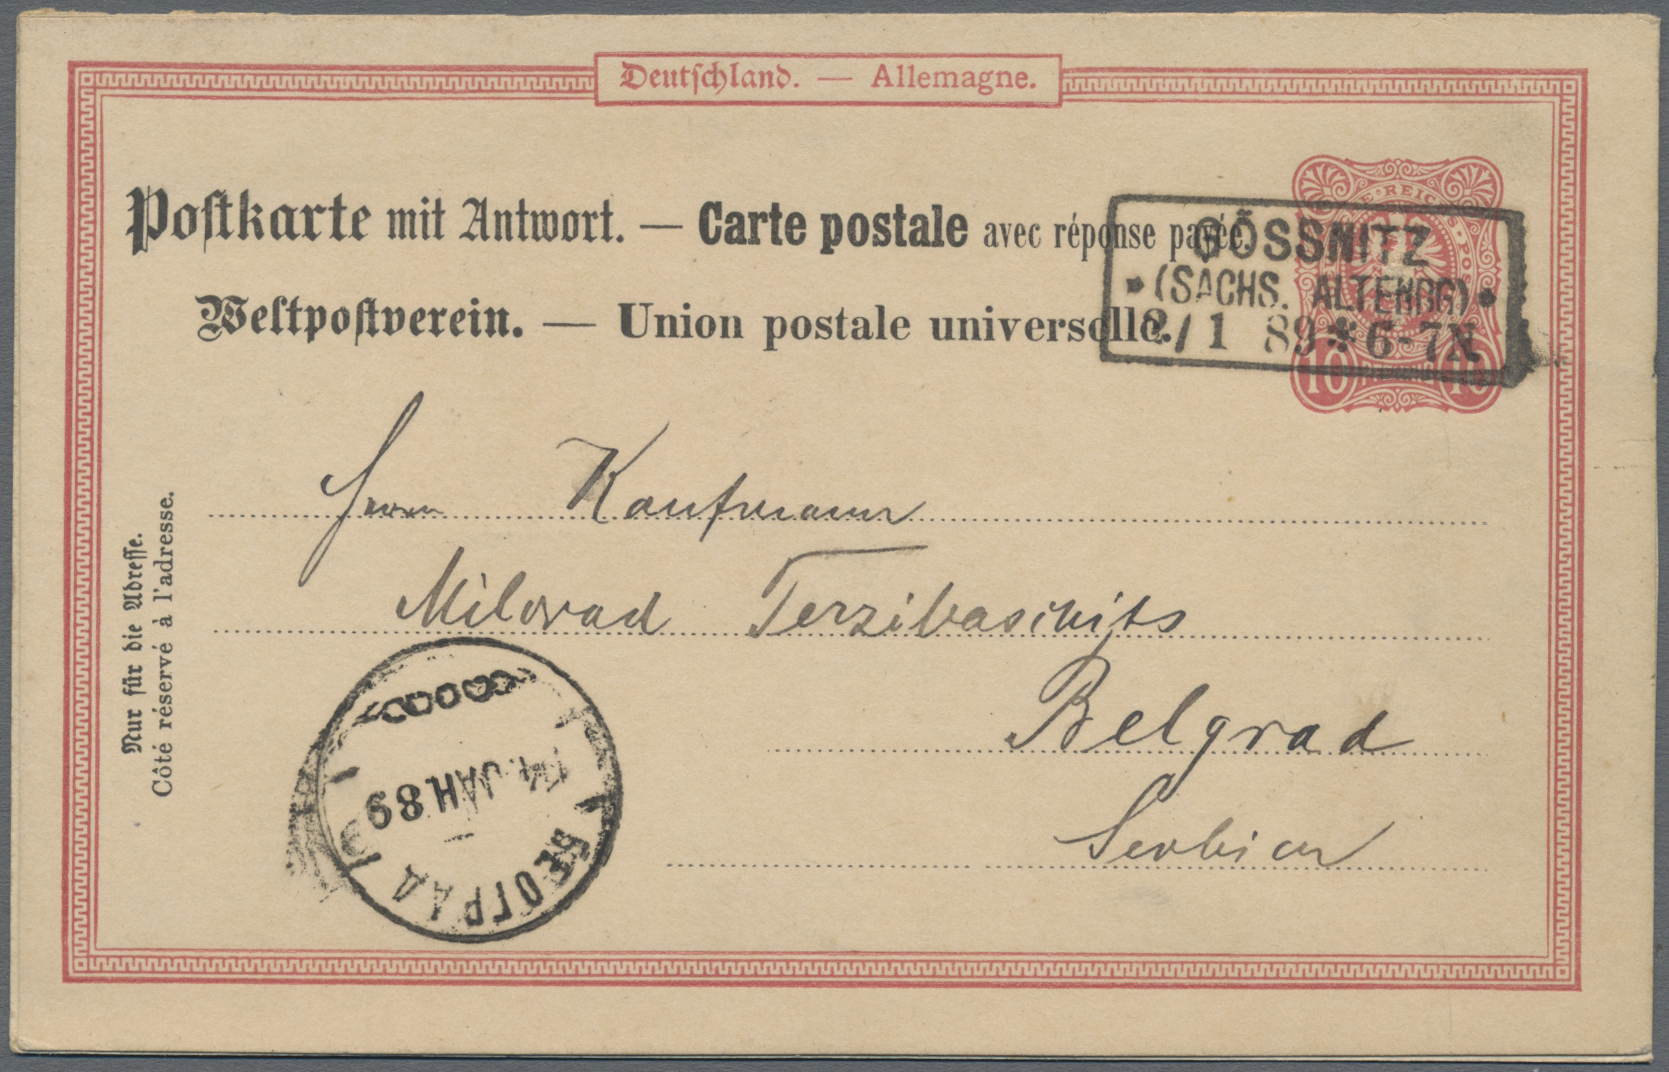 Deutschland. — Allemagne.
Postkarte mit Antwort. — Carte postale avec réponse payée.
Weltpostverein. — Union postale universelle.
REICHS POST
10 PFENNIG 10
GÖSSNITZ
* (SACHS. ALTENBG) *
2/1 89 * 6-7N
Nur für die Adresse.
Côté réservé à l'adresse.
Herrn Kaufmann
Milorad Terzibaschits
Belgrad
Serbien
ЈАН 89
БЕОГРАД